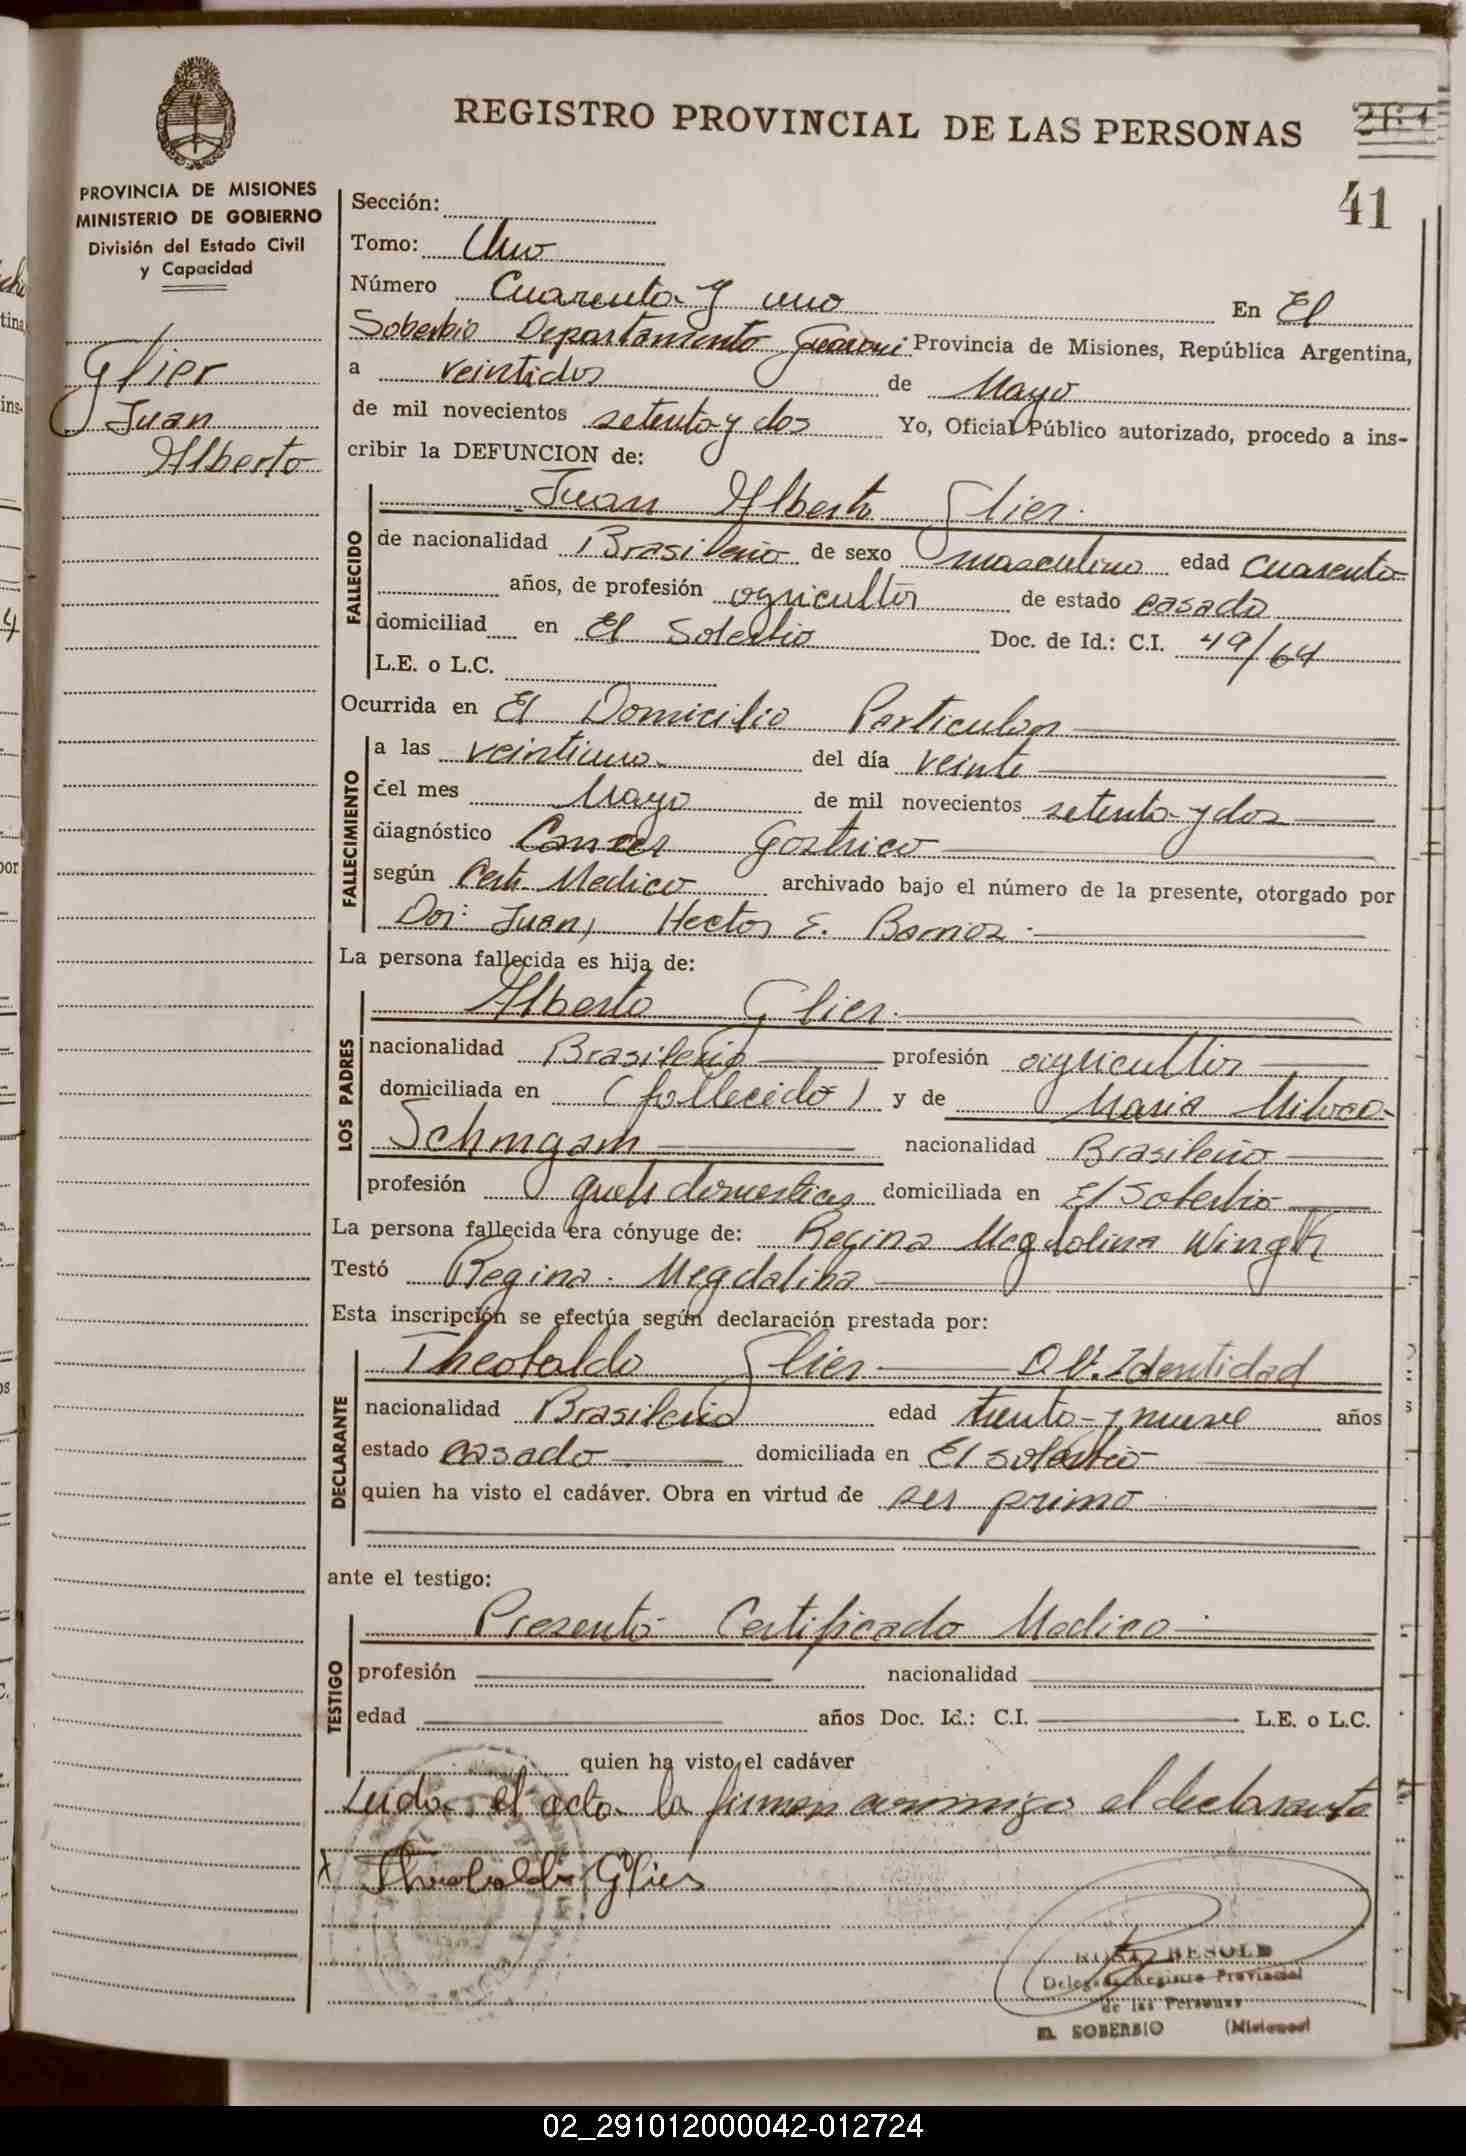 REGISTRO PROVINCIAL DE LAS PERSONAS
41
PROVINCIA DE MISIONES
MINISTERIO DE GOBIERNO
División del Estado Civil
y Capacidad
Glier
Juan
Alberto
Sección:
Tomo: Uno
Número Cuarenta y uno En El
Soberbio Departamento Guarani Provincia de Misiones, República Argentina,
a veintidos de Mayo
de mil novecientos setenta y dos Yo, Oficial Público autorizado, procedo a ins-
cribir la DEFUNCION de:
FALLECIDO
Juan Alberto Glier.
de nacionalidad Brasileño de sexo masculino edad cuarenta
años, de profesión agricultor de estado casado
domiciliad en El Soberbio Doc. de Id.: C.I. 49/64
L.E. o L.C.
Ocurrida en El Domicilio Particular
FALLECIMIENTO
a las veintiuno del día veinte
del mes Mayo de mil novecientos setenta y dos
diagnóstico Cancer Gastrico
según Cert. Medico archivado bajo el número de la presente, otorgado por
Juan, Hector E. Barrios.
La persona fallecida es hija de:
LOS PADRES
Alberto Glier.
nacionalidad Brasileño profesión agricultor
domiciliada en (fallecido) y de Maria
nacionalidad Brasileña
profesión domesticos domiciliada en El Soberbio
La persona fallecida era cónyuge de: Regina Magdalina
Testó Regina. Megdalina
Esta inscripción se efectúa según declaración prestada por:
DECLARANTE
Theobaldo Glier Identidad
nacionalidad Brasileño edad treinta y nueve años
estado casado domiciliada en El Soberbio
quien ha visto el cadáver. Obra en virtud de ser primo
ante el testigo:
TESTIGO
Presentó Certificado Medico
profesión nacionalidad
edad años Doc. Id.: C.I. L.E. o L.C.
quien ha visto el cadáver
Leida el acta la firman conmigo el declarante
X Theobaldo Glier
BESOLD
Delegada Registro Provincial
de las Personas
EL SOBERBIO (Misiones)
02_291012000042-012724